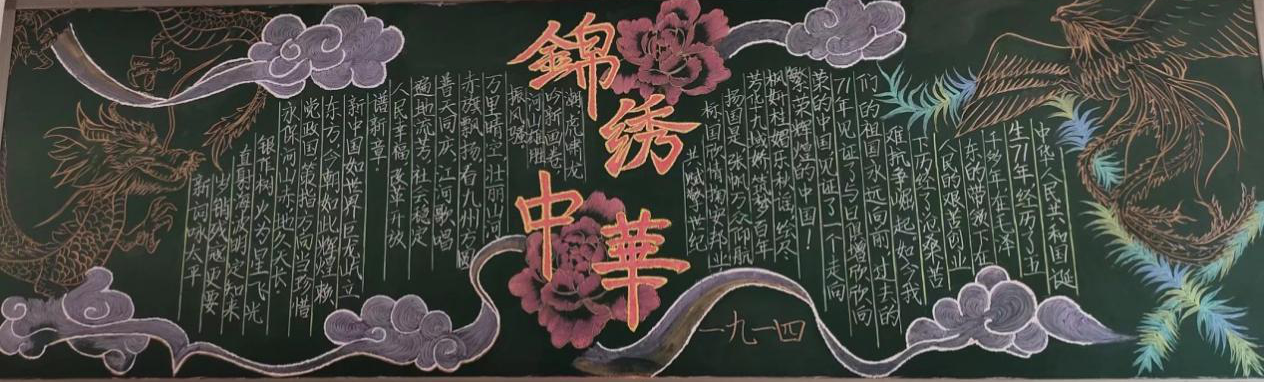 錦绣中華
中华人民共和国诞
生71年经历了五
千多年在毛泽
东的带领下在
人民的艰苦创业
下历经了沧桑苦
难抗争崛起如今我
们的祖国永远向前过去的
71年见证了与日俱增欣欣向
荣的中国见证了一个走向
繁荣辉煌的中国!
乐秋谣绘冬
芳华九域娇筑梦百年
扬国是张帆万众仰航
标国欣情陶安邦业
共赋繁世纪
潮虎啸龙
吟新画卷
河山描胜
振风骚
万里晴空壮丽山河
赤旗飘扬看九州方圆
善天同庆江河歌唱
遍地流芳社云稳定
人民幸福改革开放
谱新章
新中国如世界巨龙屹立
东方今朝如此辉煌赖
政国策指方向当珍惜
永保河山赤地久天长
银花树火为星飞光
直射海波明定知来
岁销残夜更要
新词咏太平
一九一四